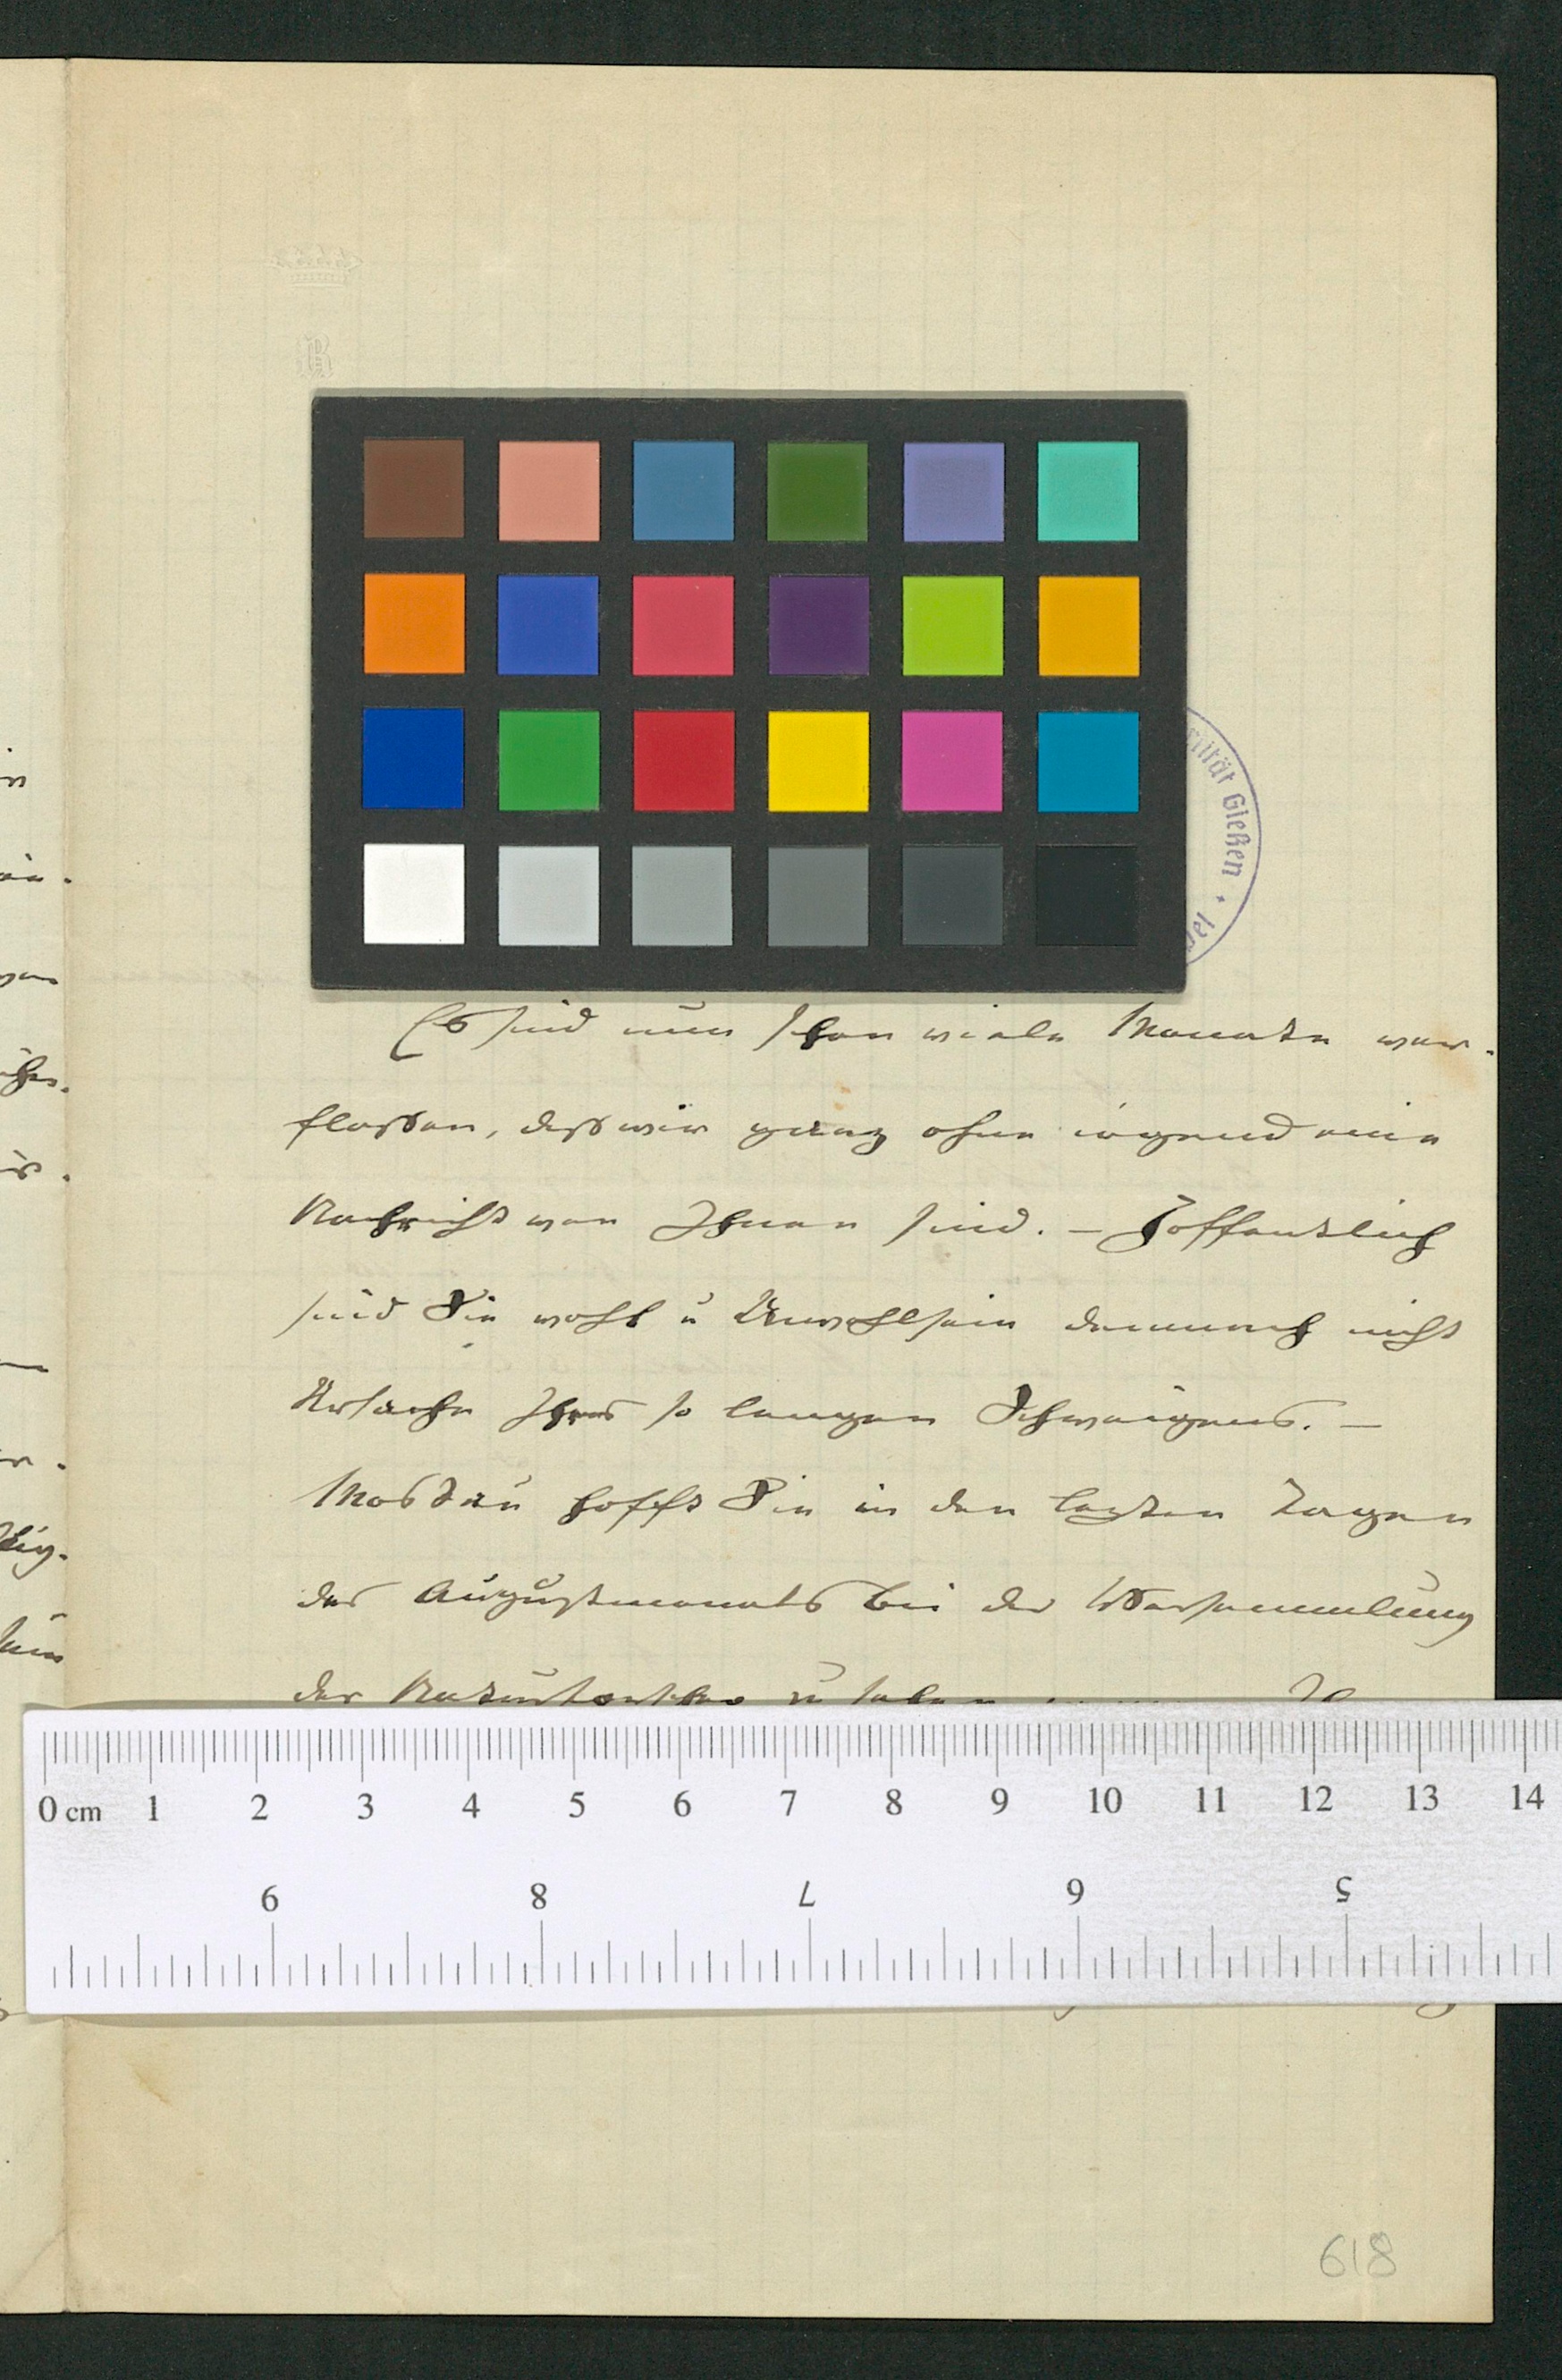 sität Gießen
Es sind nun schon viele Monate ver-
flossen, daß wir ganz ohne irgend eine
Nachricht von Ihnen sind. — Hoffentlich
sind Sie wohl u Unwohlsein demnach nicht
Ursache Ihres so langen Schweigens. —
Moskau hofft Sie in den letzten Tagen
des Augustmonats bei der Versammlung
der Naturforscher zu sehen
0 cm 1 2 3 4 5 6 7 8 9 10 11 12 13 14
9 8 7 6 5
618